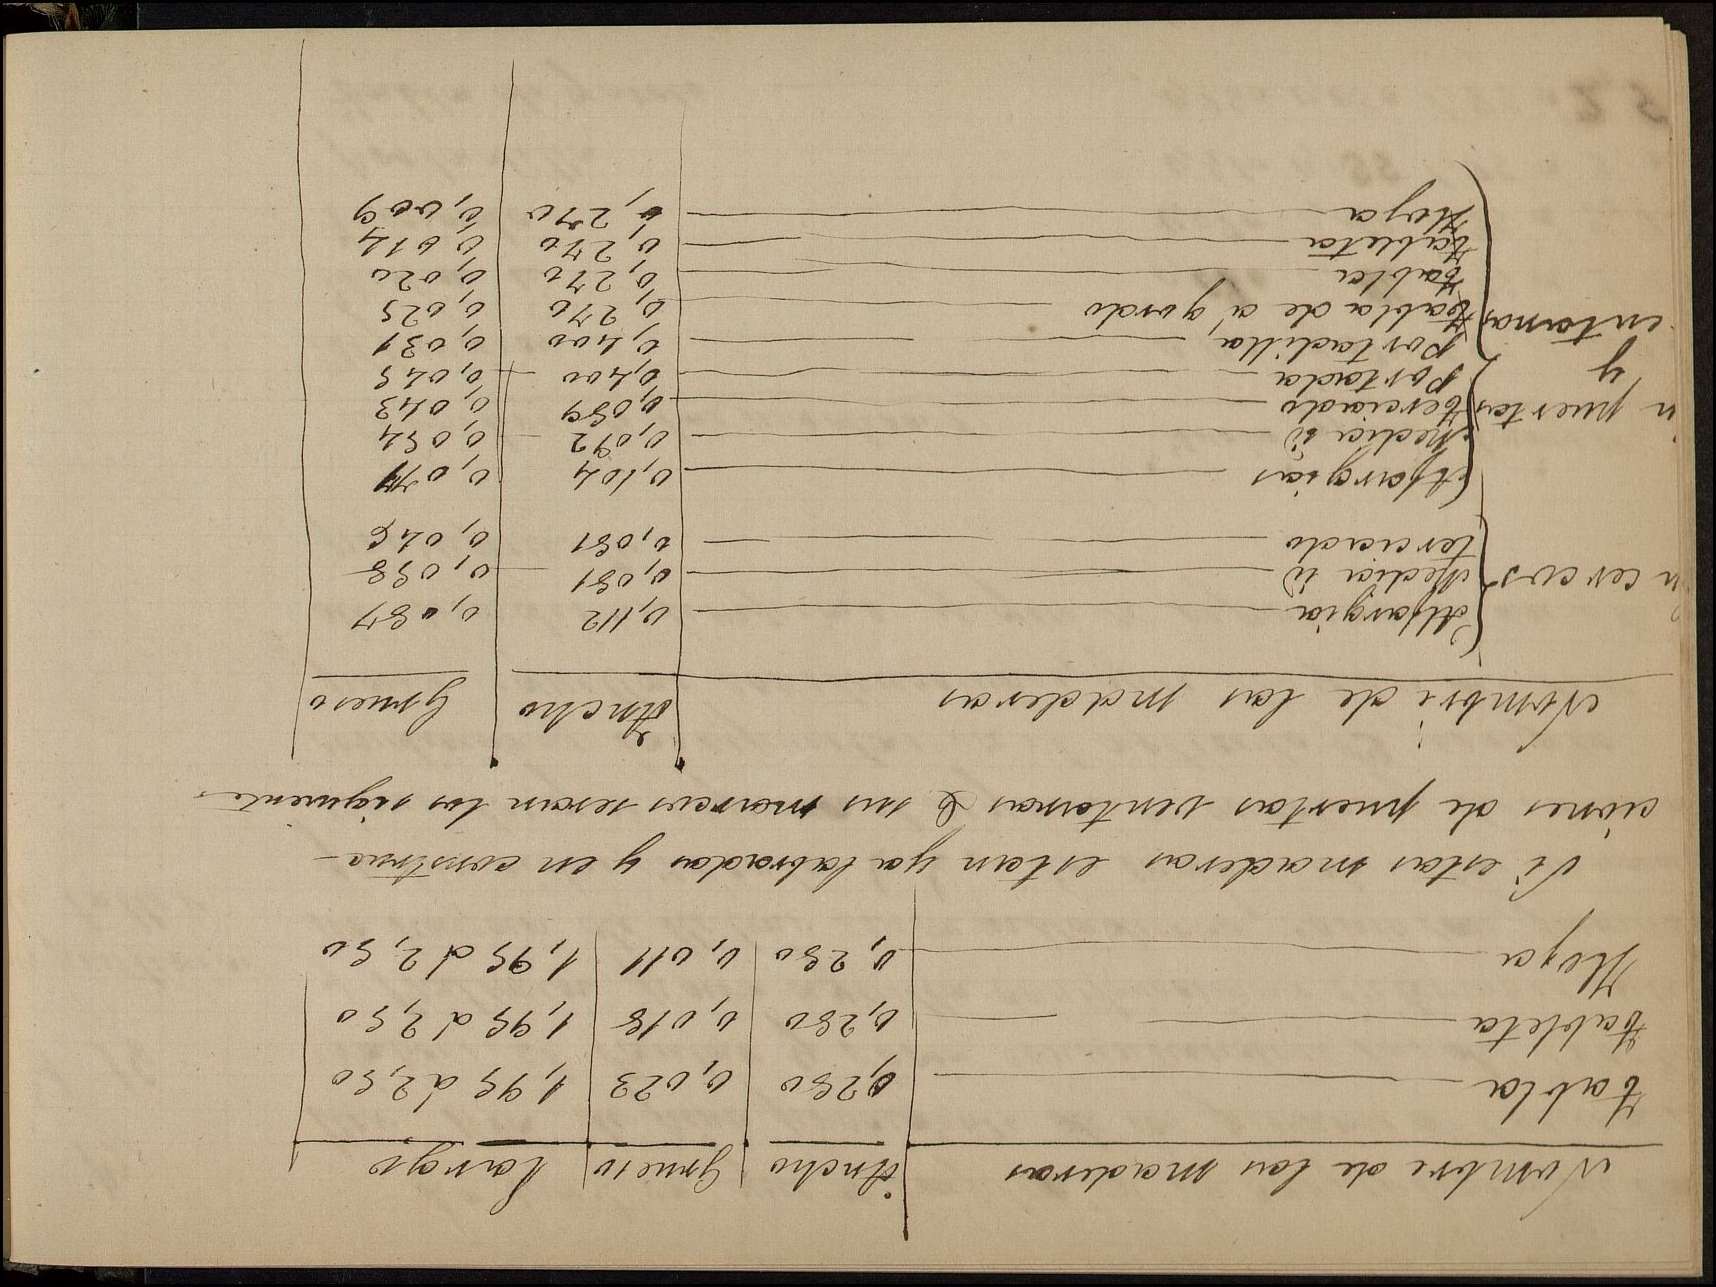 Nombre de las maderas Ancho Grueso Largo
tabla 0,280 0,023 1,95 a 2,50
tableta 0,280 0,018 1,95 a 2,50
Hoja 0,280 0,011 1,95 a 2,50
Si estas maderas estan ya labradas y en construc-
ciones de puertas ventanas & sus marcos seran los siguientes
Nombre de las maderas Ancho Grueso
Alfargia 0,112 0,087
n cercos Media id 0,081 0,058
terciado 0,081 0,046
Alfargias 0,104
Media id 0,092 0,054
n puertas terciado 0,089 0,043
y Portada 0,400 0,045
Portadilla 0,400 0,031
entanas tabla de a gordo 0,270 0,025
tabla 0,270 0,020
tableta 0,270 0,014
Hoja 0,270 0,009
52